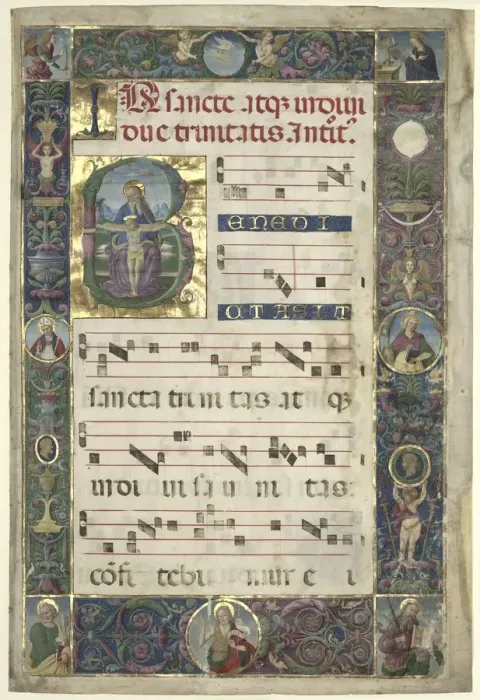 IN sancte atqꝫ indiui
due trinitatis. Intit̃.
BENEDI
CTA SIT
sancta tri ni tas at qꝫ
indi ui sa u ni tas:
cōfi tebi mur e i